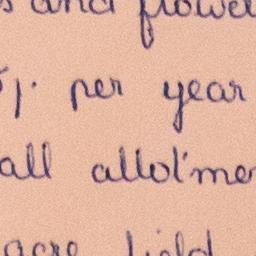 and flowe
per year
all allotme
acre field